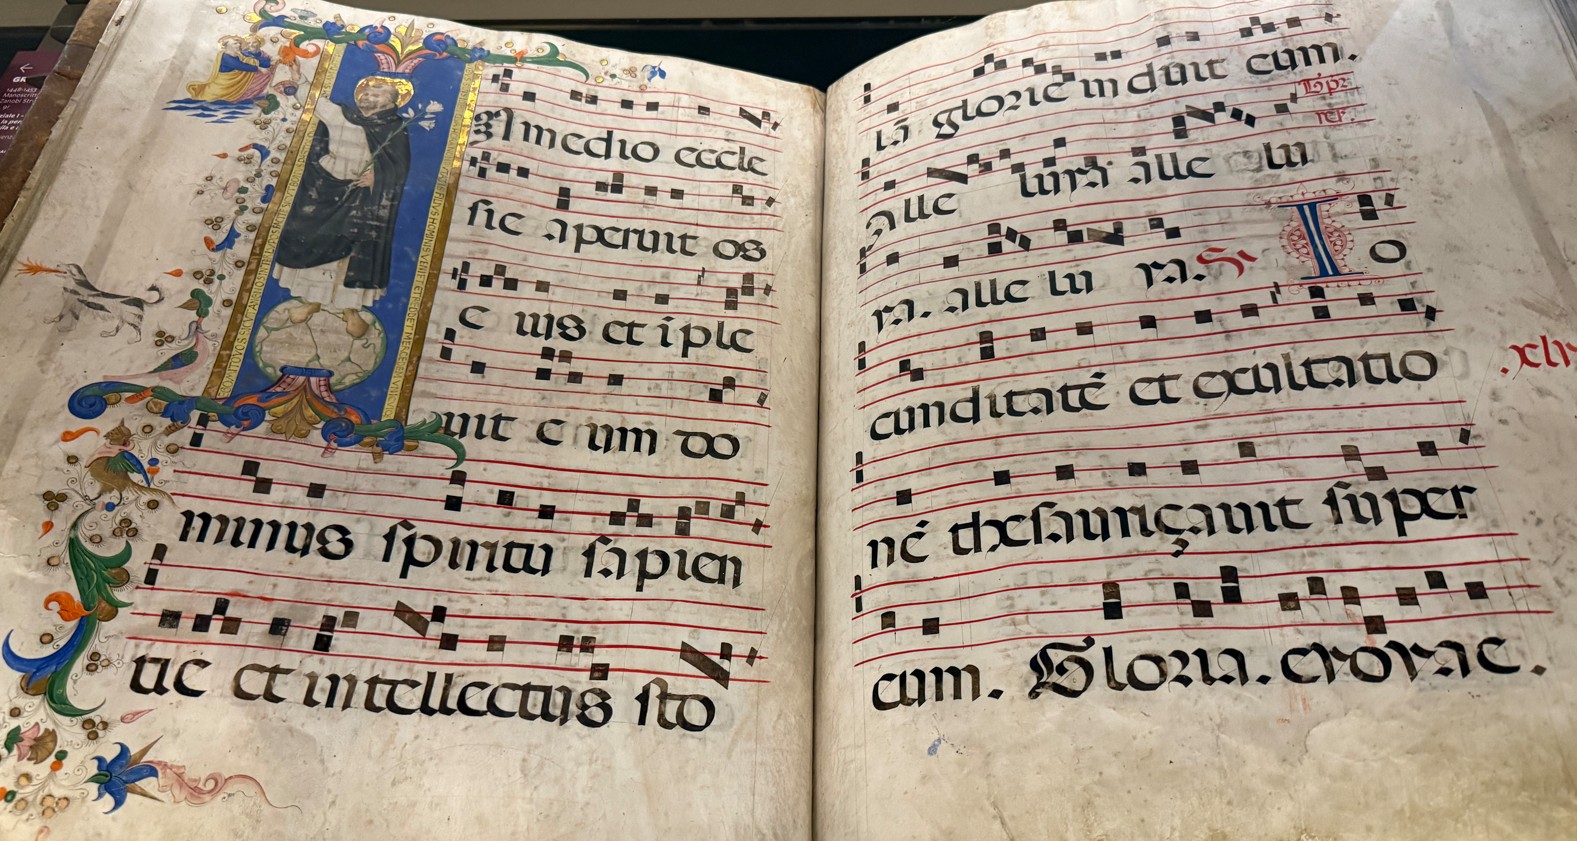 GR
N medio eccle
sie aperuit os
e ius et īple
uit e um do
minus spiritu sapien
tie et intellectus sto
lā glorie induit eum.
Alle luya alle lu
ya. alle lu ya. Ps. I o
cunditatē et exultatio
nē thesauriçauit super
eum. Gloria. evovae.
.xliv